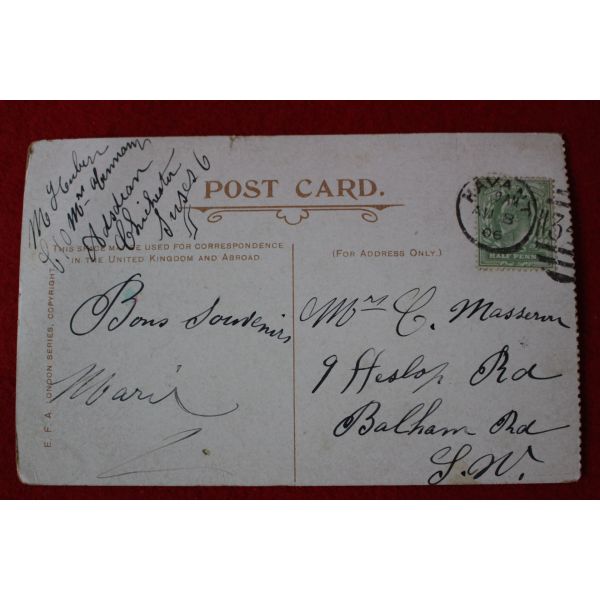 M Huben
Mrs
Aasdean
Chichester
Susex
POST CARD.
THIS SPACE MAY BE USED FOR CORRESPONDENCE
IN THE UNITED KINGDOM AND ABROAD
(FOR ADDRESS ONLY.)
E. F. A. LONDON SERIES, COPYRIGHT
Bons Souvenirs
Marie
HAVANT
AU 8
06
HALF PENNY
Mrs C. Masseron
9 Heslop Rd
Balham Rd
S.W.